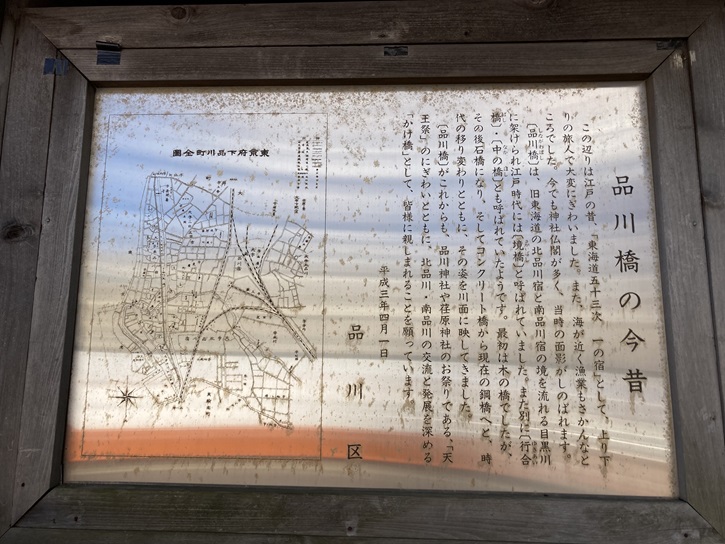 品川橋の今昔
この辺りは江戸の昔、「東海道五十三次　一の宿」として、上り下
りの旅人で大変にぎわいました。また、海が近く漁業もさかんなと
ころでした。今でも神社仏閣が多く、当時の面影がしのばれます。
〔品川橋〕は、旧東海道の北品川宿と南品川宿の境を流れる目黒川
に架けられ江戸時代には〔境橋〕と呼ばれていました。また別に〔行合
橋〕・〔中の橋〕とも呼ばれていたようです。最初は木の橋でしたが、
その後石橋になり、そしてコンクリート橋から現在の鋼橋へと、時
代の移り変わりとともに、その姿を川面に映してきました。
〔品川橋〕がこれからも、品川神社や荏原神社のお祭りである、「天
王祭」のにぎわいとともに、北品川・南品川の交流と発展を深める
「かけ橋」として、皆様に親しまれることを願っています。
平成三年四月一日
品川区
東京府下品川町全圖